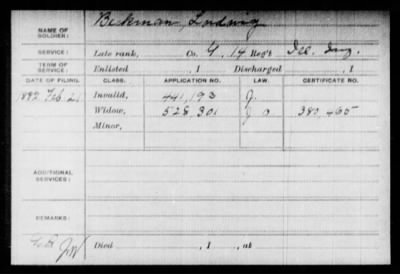 NAME OF SOLDIER: Beckman, Ludwig
SERVICE: Late rank, Co. G, 14 Reg't Ill. Inf.
TERM OF SERVICE: Enlisted , 1 Discharged , 1
DATE OF FILING. CLASS. APPLICATION NO. LAW. CERTIFICATE NO.
1882 Feb 21 Invalid, 441,193 J.
Widow, 528,301 J 380,465
Minor,
ADDITIONAL SERVICES:
REMARKS:
Died , 1 , at